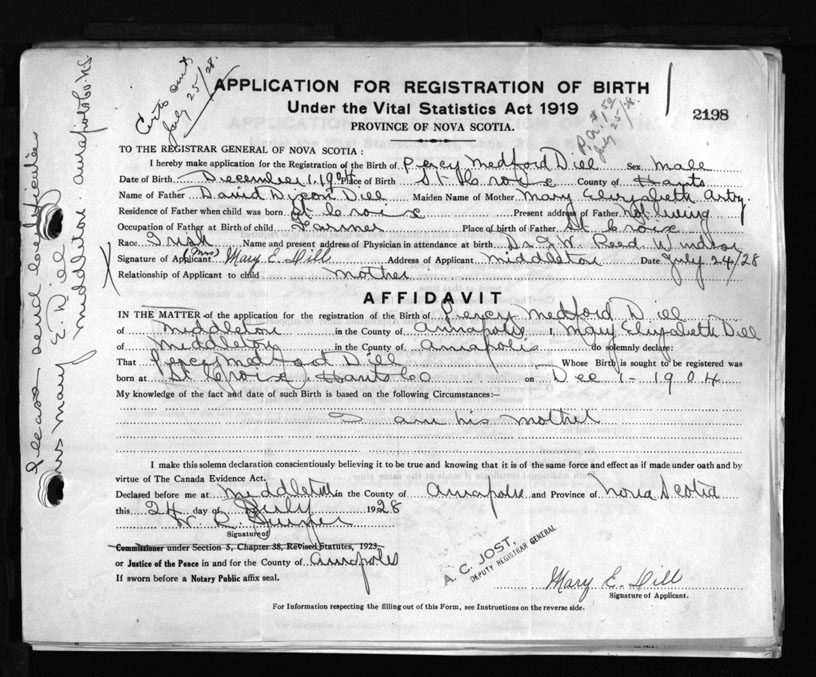 Certs sent
July 25/28.
APPLICATION FOR REGISTRATION OF BIRTH
Under the Vital Statistics Act 1919
PROVINCE OF NOVA SCOTIA.
2198
P.O. $1.50
July 25/28.
TO THE REGISTRAR GENERAL OF NOVA SCOTIA:
I hereby make application for the Registration of the Birth of Percy Medford Dill Sex Male
Date of Birth December 1, 1904 Place of Birth St Croix County of Hants
Name of Father David Dixon Dill Maiden Name of Mother Mary Elizabeth
Residence of Father when child was born St Croix Present address of Father Not living
Occupation of Father at Birth of child Farmer Place of birth of Father St Croix
Race Irish Name and present address of Physician in attendance at birth Dr J. W. Reed Windsor
Signature of Applicant (Mrs) Mary E. Dill Address of Applicant Middleton Date July 24/28
Relationship of Applicant to child mother
AFFIDAVIT
IN THE MATTER of the application for the registration of the Birth of Percy Medford Dill
of Middleton in the County of Annapolis I, Mary Elizabeth Dill
of Middleton in the County of Annapolis do solemnly declare:
That Percy Medford Dill Whose Birth is sought to be registered was
born at St Croix, Hants Co on Dec 1 - 1904
My knowledge of the fact and date of such Birth is based on the following Circumstances:—
I am his mother
I make this solemn declaration conscientiously believing it to be true and knowing that it is of the same force and effect as if made under oath and by
virtue of The Canada Evidence Act.
Declared before me at Middleton in the County of Annapolis and Province of Nova Scotia
this 24 day of July 1928
W. R.
Signature of
Commissioner under Section 5, Chapter 38, Revised Statutes, 1923.
or Justice of the Peace in and for the County of Annapolis
If sworn before a Notary Public affix seal.
A. C. JOST,
DEPUTY REGISTRAR GENERAL
Mary E. Dill
Signature of Applicant.
For Information respecting the filling out of this Form, see Instructions on the reverse side.
Please send certificates
Mrs Mary E. Dill
Middleton Annapolis Co. N.S.